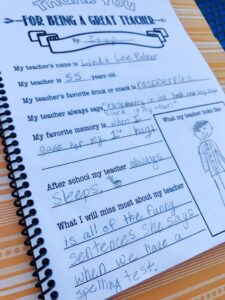 THANK YOU
FOR BEING A GREAT TEACHER
By:
My teacher's name is Lynda Lee Palmer
My teacher is 55 years old.
My teacher's favorite drink or snack is raspberries.
My teacher always says "raspberry
My favorite memory is when I
gave her my 1st hug!
After school my teacher always
Sleeps.
What I will miss most about my teacher
is all of the funny
sentences she says
when we have a
spelling test.